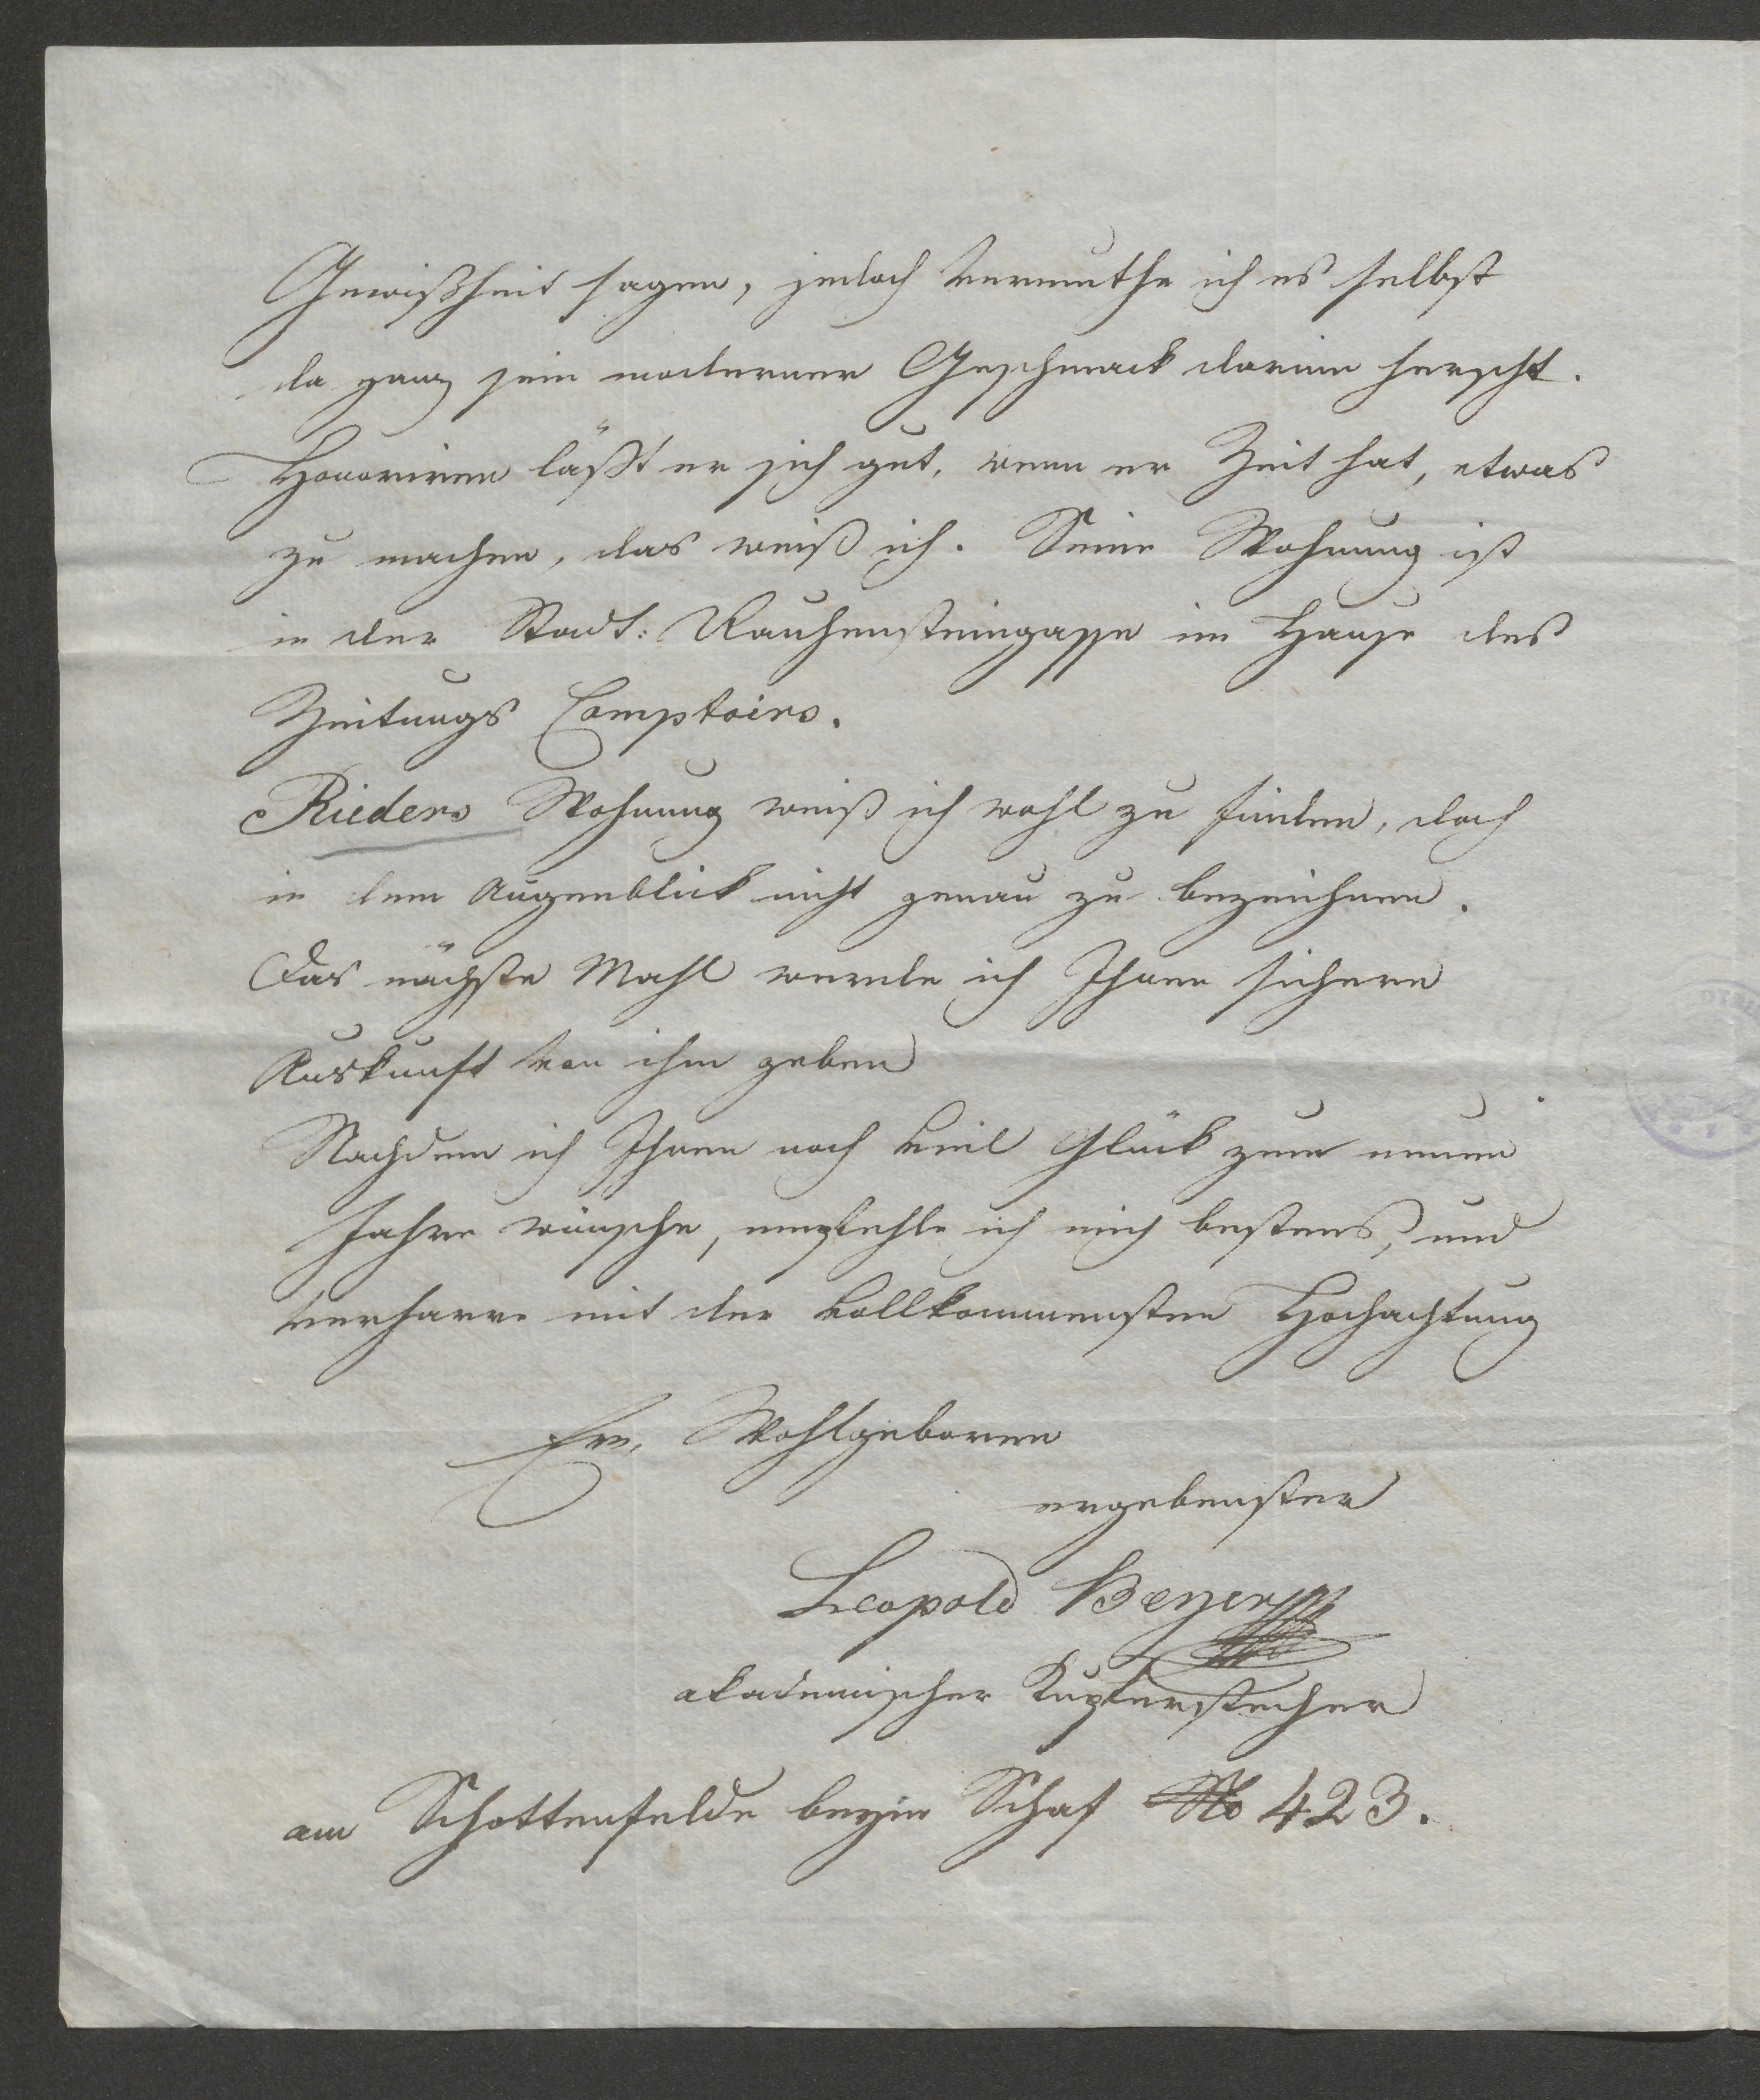 Gewißheit sagen, jedoch vermuthe ich es selbst
da ganz sein moderner Geschmack darinn herscht.
Honoriren läßt er sich gut, wenn er Zeit hat, etwas
zu machen, das weiß ich. Seine Wohnung ist
in der Stadt: Rauhensteingasse im Hause des
Zeitungs Comptoirs.
Rieders Wohnung weiß ich wohl zu finden, doch
in dem Augenblick nicht genau zu bezeichnen.
Das nächste Mahl werde ich Ihnen sichere
Auskunft von ihm geben
Nachdem ich Ihnen noch viel Glück zum neuen
Jahre wünsche, empfehle ich mich bestens, und
verharre mit der vollkommensten Hochachtung
Ew. Wohlgeboren
ergebenster
Leopold Beyer
akademischer Kupferstecher
am Schottenfelde beym Schaf No 423.